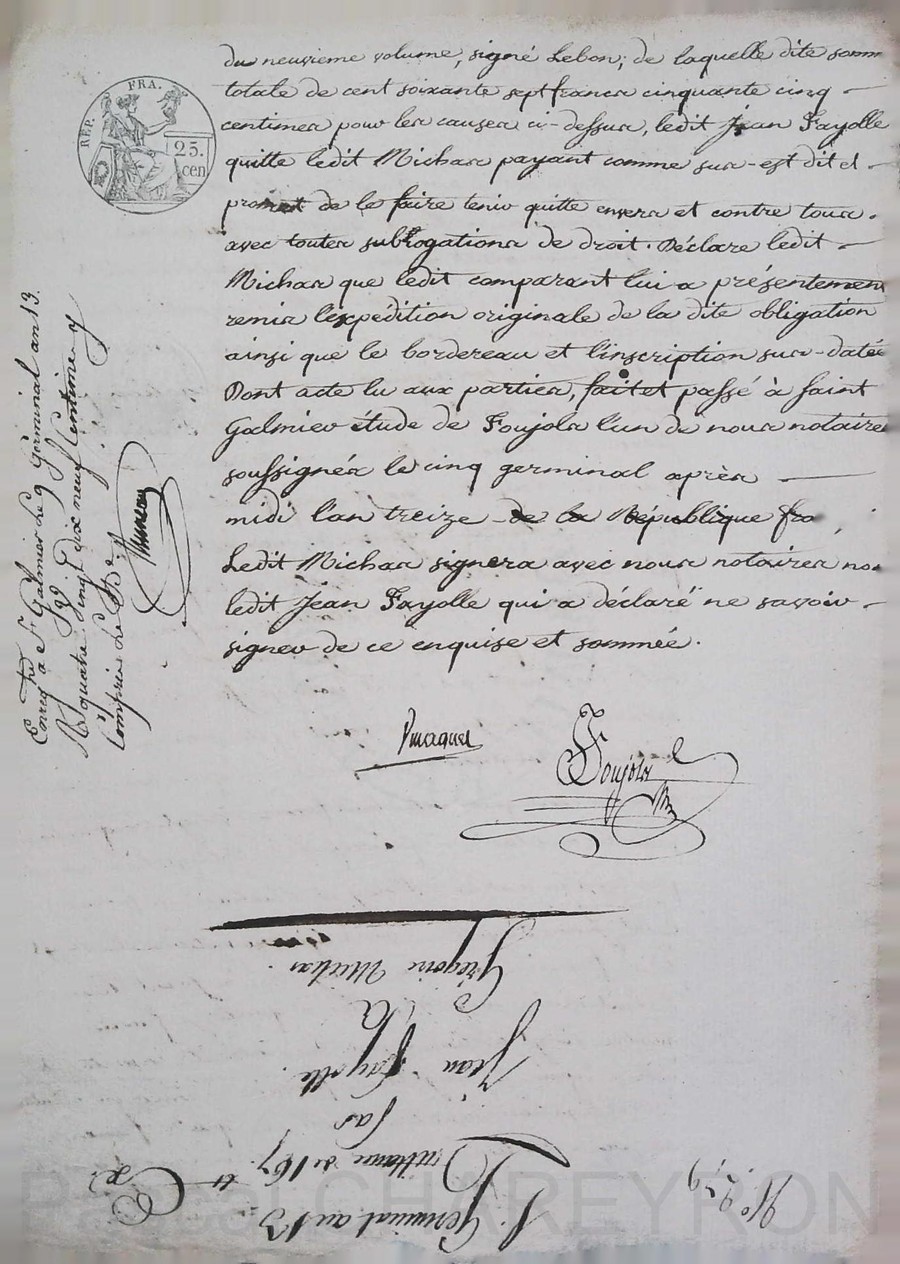 REP. FRA.
25.
cen
du neuvieme volume, signé Lebon; de laquelle dite somm
totale de cent soixante sept francs cinquante cinq
centimes pour les causes ci-dessus, ledit Jean Fayolle
quitte ledit Michas payant comme sus-est dit et
promet de le faire tenir quitte envers et contre tous.
avec toutes subrogations de droit. Déclare ledit
Michas que ledit comparant lui a présentement
remis l'expédition originale de la dite obligation
ainsi que le bordereau et l'inscription sus-datée
Dont acte lu aux parties, fait et passé à saint
Galmier étude de Foujols l'un de nous notaires
soussignés le cinq germinal après
midi l'an treize de la République fra
Ledit Michas signera avec nous notaires no
ledit Jean Fayolle qui a déclaré ne savoir
signer de ce enquise et sommée.
Enreg à St Galmier le 9 Germinal an 13.
quatre vingt dix neuf centimes
Compris le
Foujols
Grégoire Michas
à
Jean Fayolle
Par
Quittance de 167
5. Germinal an 13
N° 279
Pascal CHAREYRON